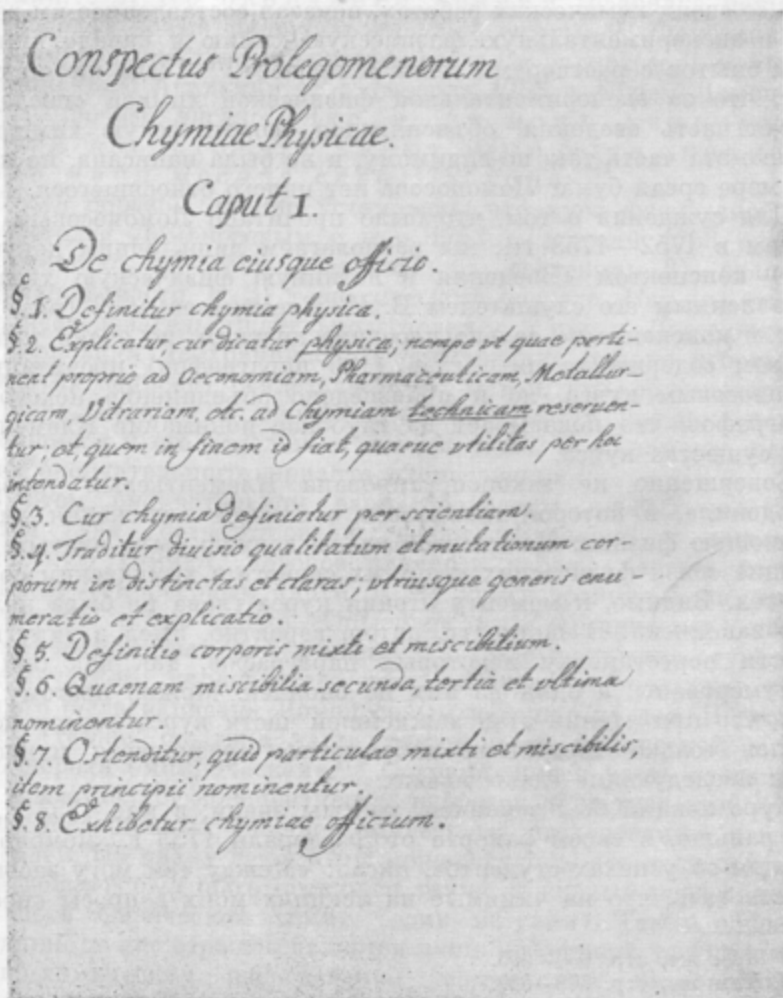 Conspectus Prolegomenorum
Chymiae Physicae.
Caput 1.
De chymia eiusque officio.
§. 1. Definitur chymia physica.
§. 2. Explicatur, cur dicatur physica; nempe vt quae perti-
nent proprie ad Oeconomiam, Pharmaceuticam, Metallur-
gicam, Vitrariam, etc. ad Chymiam technicam reseruen-
tur; et, quem in finem id fiat, quaeue vtilitas per hoc
intendatur.
§. 3. Cur chymia definiatur per scientiam.
§. 4. Traditur diuisio qualitatum et mutationum cor-
porum in distinctas et claras; vtriusque generis enu-
meratio et explicatio.
§. 5. Definitio corporis mixti et miscibilium.
§. 6. Quaenam miscibilia secunda, tertia et vltima
nominentur.
§. 7. Ostenditur, quid particulae mixti et miscibilis,
item principii nominentur.
§. 8. Exhibetur chymiae officium.